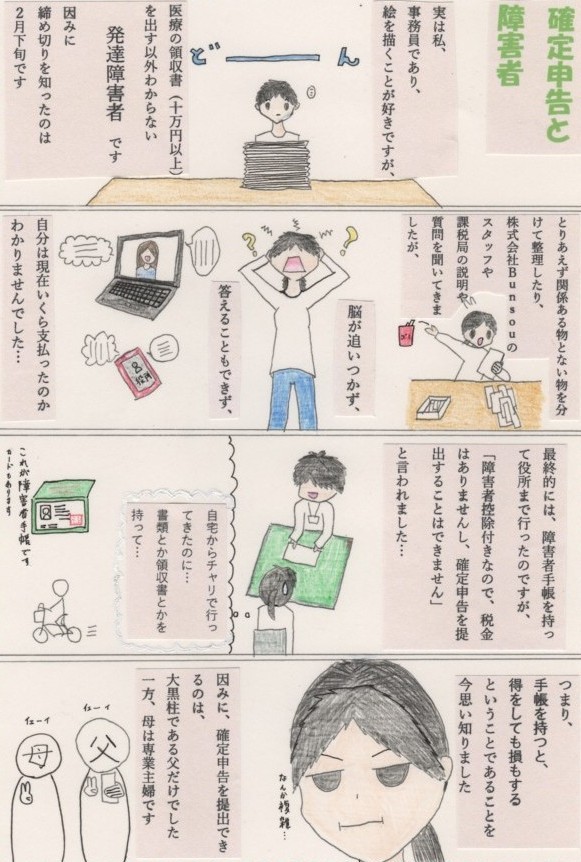 確定申告と
障害者
実は私、
事務員であり、
絵を描くことが好きですが、
ど
ん
医療の領収書（十万円以上）
を出す以外わからない
発達障害者 です
因みに
締め切りを知ったのは
２月下旬です
とりあえず関係ある物とない物を分
けて整理したり、
株式会社Ｂｕｎｓｏｕの
スタッフや
課税局の説明や
質問を聞いてきま
したが、
ゴミ
脳が追いつかず、
答えることもできず、
役所
自分は現在いくら支払ったのか
わかりませんでした…
最終的には、障害者手帳を持っ
て役所まで行ったのですが、
「障害者控除付きなので、税金
はありませんし、確定申告を提
出することはできません」
と言われました…
自宅からチャリで行っ
てきたのに…
書類とか領収書とかを
持って…
これが障害者手帳です
カードもあります
つまり、
手帳を持つと、
得をしても損もする
ということであることを
今思い知りました
なんか複雑…
因みに、確定申告を提出でき
るのは、
大黒柱である父だけでした
一方、母は専業主婦です
イェーイ
父
イェーイ
母